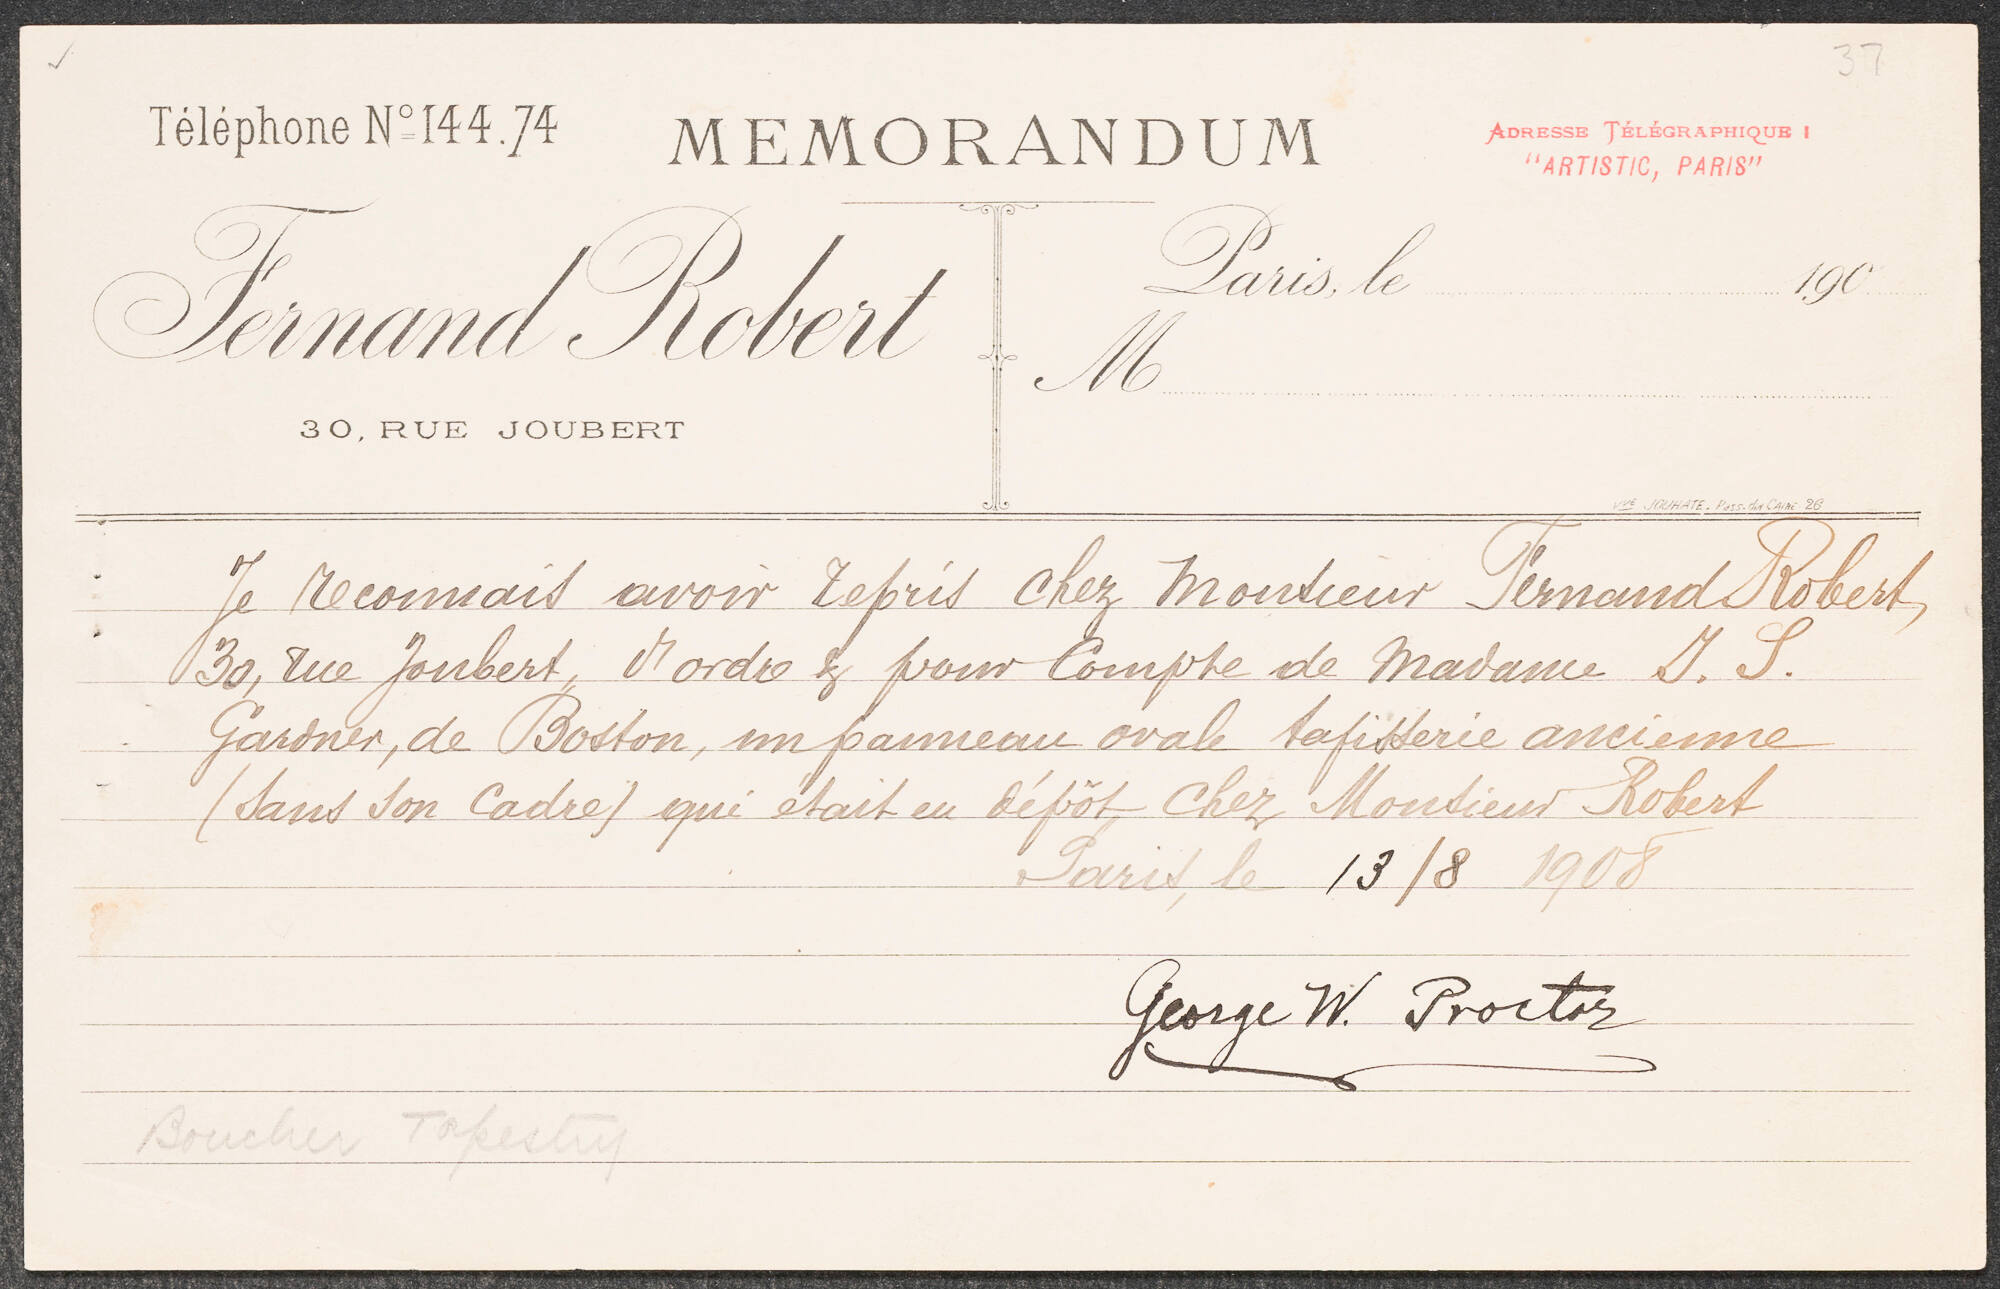 37
Téléphone No 144.74
MEMORANDUM
ADRESSE TÉLÉGRAPHIQUE :
"ARTISTIC, PARIS"
Fernand Robert
30, RUE JOUBERT
Paris, le 190
M
Vve JOUHATE. Pass. du CAIRE 26
Je reconnais avoir repris chez Monsieur Fernand Robert,
30, rue Joubert, d'ordre & pour Compte de Madame J. S.
Gardner, de Boston, un panneau ovale tapisserie ancienne
(sans son Cadre) qui était en dépôt chez Monsieur Robert
Paris, le 13/8 1908
George W. Proctor
Boucher Tapestry